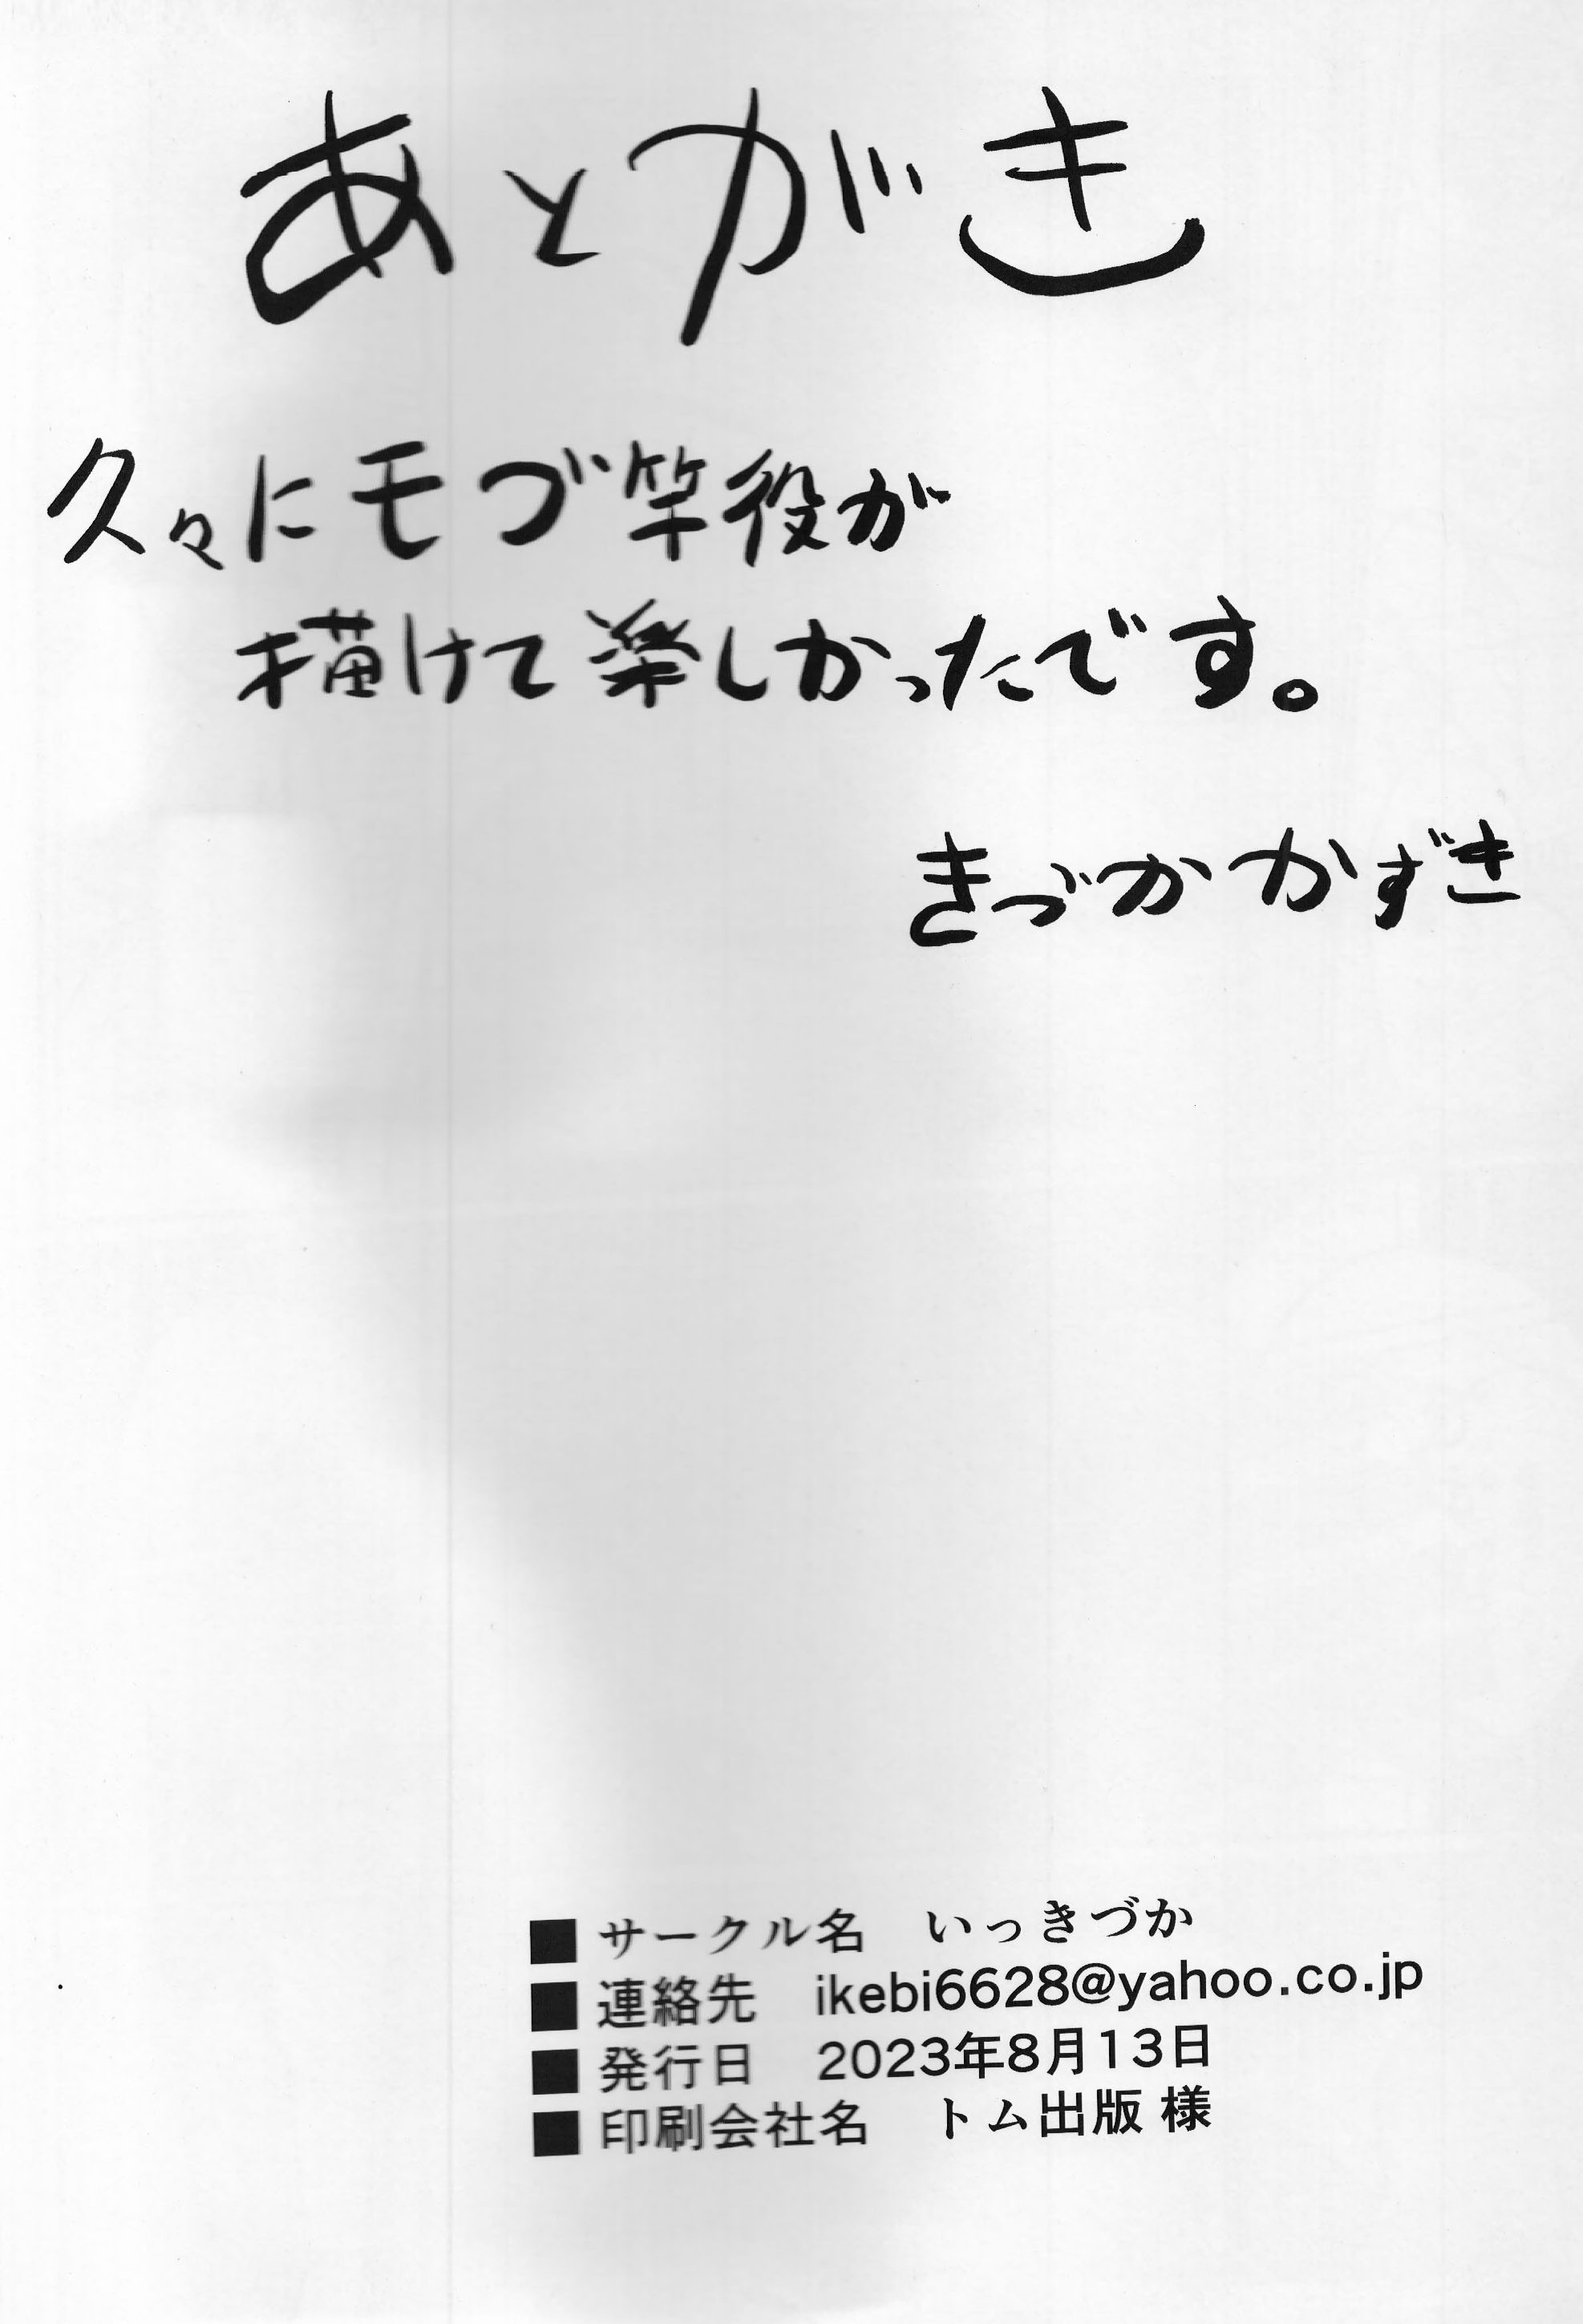 あとがき
久々にモブ竿役が
描けて楽しかったです。
きづかかずき
■サークル名　いっきづか
■連絡先　ikebi6628@yahoo.co.jp
■発行日　2023年8月13日
■印刷会社名　トム出版 様